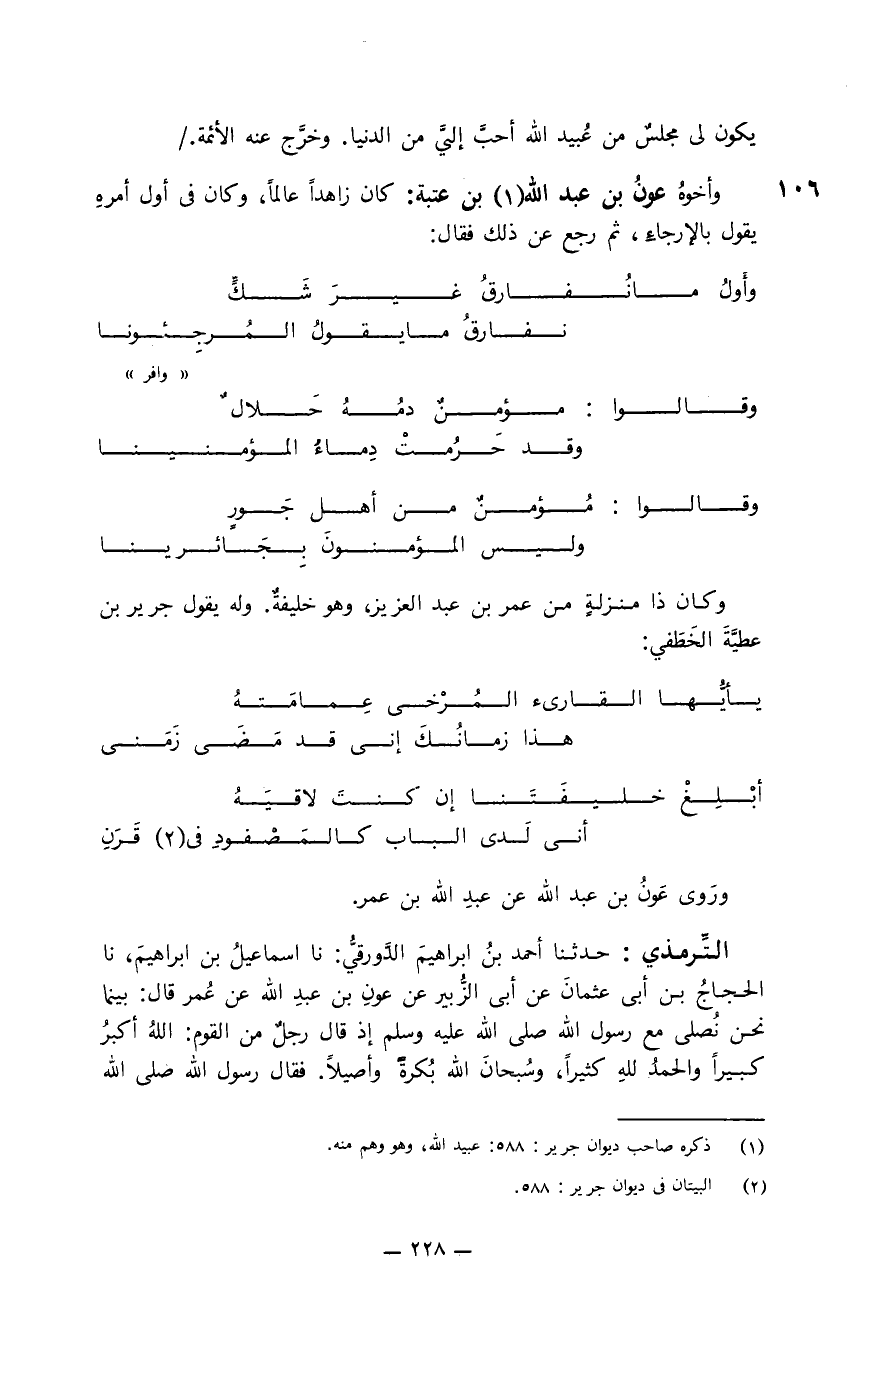 يكون لى مجلسٌ من عُبيد الله أحبَّ إليَّ من الدنيا. وخرَّج عنه الأئمة./
١٠٦ وأخوهُ عونُ بن عبد الله(١) بن عتبة: كان زاهداً عالماً، وكان فى أول أمرهِ
يقول بالإرجاء، ثم رجع عن ذلك فقال:
وأولُ مانُفارقُ غيرَ شَكٍّ
نفارقُ مايقولُ المُرجِئونا
« وافر »
وقالوا : مؤمنٌ دمُهُ حَلالٌ
وقد حَرُمتْ دِماءُ المؤمنينا
وقالوا : مُؤمنٌ من أهل جَورٍ
وليس المؤمنونَ بِجَائرينا
وكان ذا منزلةٍ من عمر بن عبد العزيز، وهو خليفةٌ. وله يقول جرير بن
عطيَّةَ الخَطَفي:
يأيُّها القارىء المُرْخى عِمامَتهُ
هذا زمانُكَ إنى قد مَضَى زَمَنى
أبْلِغْ خليفَتَنا إن كنتَ لاقيَهُ
أنى لَدى الباب كالمَصْفودِ فى(٢) قَرَنِ
ورَوى عَونُ بن عبد الله عن عبدِ الله بن عمر.
التِّرمذي : حدثنا أحمد بنُ ابراهيمَ الدَّورقيُّ: نا اسماعيلُ بن ابراهيمَ، نا
الحجاجُ بن أبى عثمانَ عن أبى الزُّبير عن عونِ بن عبدِ الله عن عُمر قال: بينما
نحن نُصلى مع رسول الله صلى الله عليه وسلم إذ قال رجلٌ من القوم: اللهُ أكبرُ
كبيراً والحمدُ للهِ كثيراً، وسُبحانَ الله بُكرةً وأصيلاً. فقال رسول الله صلى الله
(١) ذكره صاحب ديوان جرير : ٥٨٨: عبيد الله، وهو وهم منه.
(٢) البيتان فى ديوان جرير : ٥٨٨.
— ٢٢٨ —